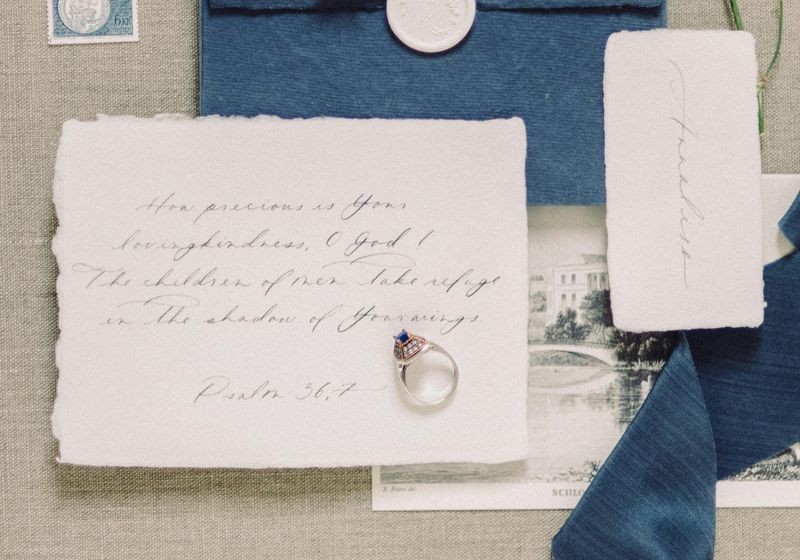 6 KR
How precious is Your
lovingkindness, O God!
The children of men take refuge
in the shadow of Your wings.
Psalm 36,7
Annalisa
SCHLO